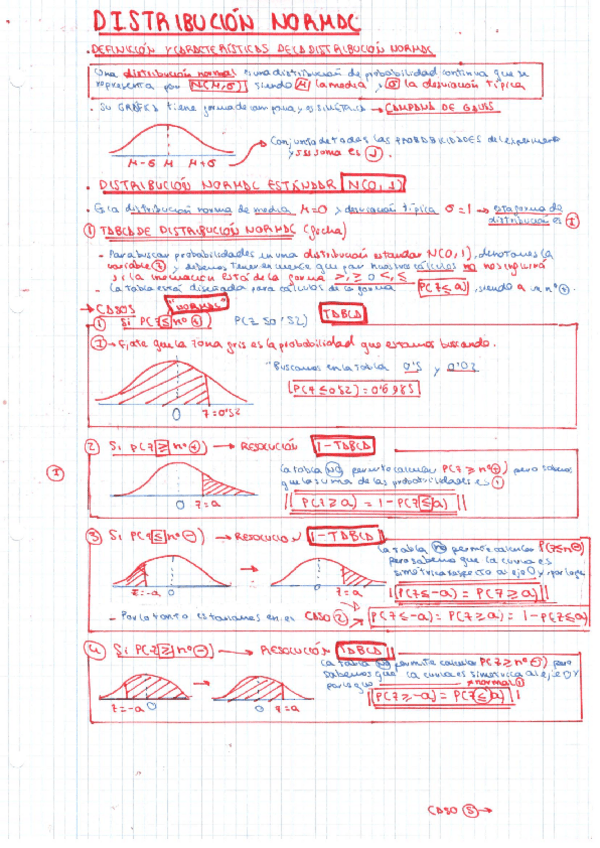 DISTRIBUCIÓN NORMAL
· DEFINICIÓN Y CARACTERÍSTICAS DE LA DISTRIBUCIÓN NORMAL
Una distribución normal es una distribución de probabilidad continua que se
representa por N(μ,σ), siendo μ la media y σ la desviación típica
· Su GRÁFICA tiene forma de campana y es simétrica → CAMPANA DE GAUSS
Conjunto de todas las PROBABILIDADES del experimento
y su suma es 1.
μ-σ μ μ+σ
· DISTRIBUCIÓN NORMAL ESTÁNDAR N(0,1)
· Es la distribución norma de media μ=0 y desviación típica σ=1 → esta forma de
distribución es I
I TABLA DE DISTRIBUCIÓN NORMAL (fecha)
- Para buscar probabilidades en una distribución estandar N(0,1), denotamos la
variable z y debemos tener en cuenta que para nuestros cálculos no nos
si la inecuación está de la forma >, ≥ o <, ≤
- La tabla está diseñada para cálculos de la forma P(z≤a), siendo a un nº+.
→ CASOS "NORMAL"
1) Si P(z≤nº+) P(z≤0'52) TABLA
I → Fíjate que la zona gris es la probabilidad que estamos buscando.
"Buscamos en la tabla 0'5 y 0'02
P(z≤0'52)=0'6985
0 z=0'52
2 Si P(z≥nº+) → RESOLUCIÓN 1-TABLA
I
La tabla NO permite calcular P(z≥nº+) pero sabemos
que la suma de las probabilidades es 1
P(z≥a)=1-P(z≤a)
0 z=a
3 Si P(z≤nº-) → RESOLUCIÓN 1-TABLA
La tabla no permite calcular P(z≤nº-)
pero sabemos que la curva es
simétrica respecto al eje OY, por lo que
P(z≤-a)=P(z≥a)
z=-a 0 0 z=a
- Por lo tanto estaríamos en el CASO 2 P(z≤-a)=P(z≥a)=1-P(z≤a)
4 Si P(z≥nº-) → RESOLUCIÓN TABLA
La tabla NO permite calcular P(z≥nº-) pero
sabemos que la curva es simétrica al eje OY
por lo que normal 1
P(z≥-a)=P(z≤a)
z=-a 0 0 z=a
CASO 5 →